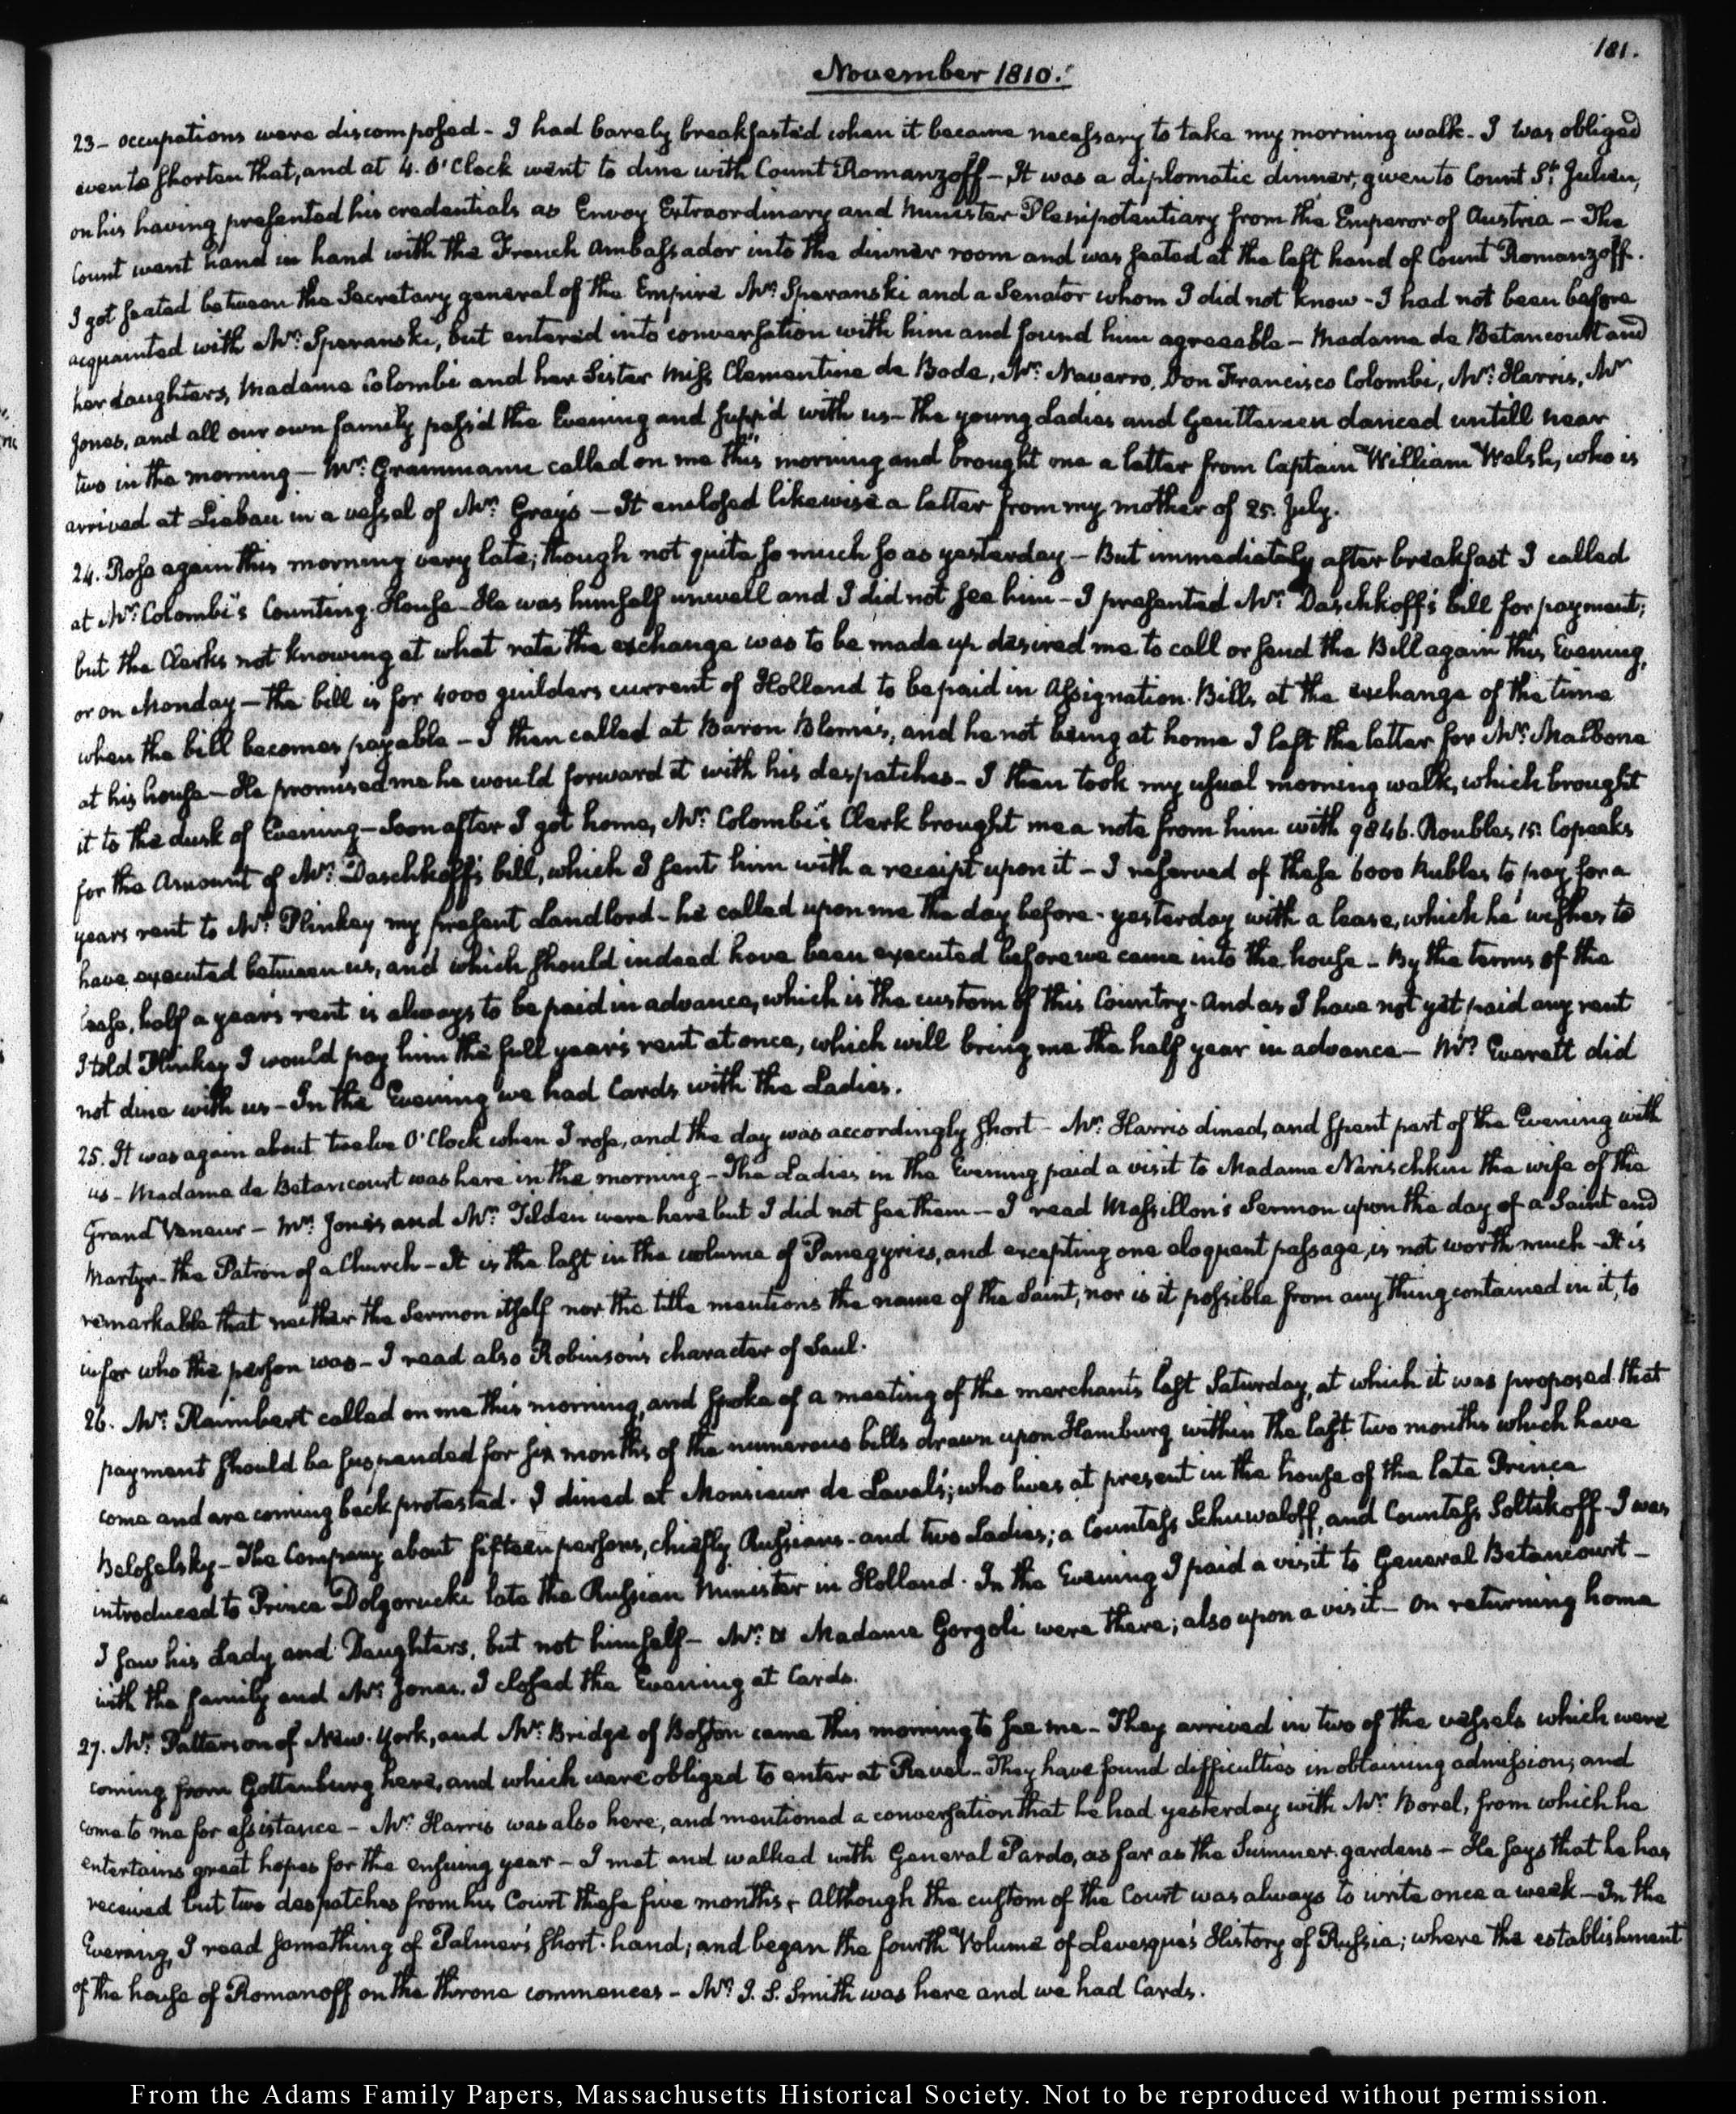 181.
November 1810.
23 - occupations were discomposed - I had barely breakfasted when it became necessary to take my morning walk - I was obliged
even to shorten that, and at 4. O'Clock went to dine with Count Romanzoff - It was a diplomatic dinner, given to Count St. Julien,
on his having presented his credentials as Envoy Extraordinary and Minister Plenipotentiary from the Emperor of Austria - The
Count went hand in hand with the French Ambassador into the dinner room and was seated at the left hand of Count Romanzoff.
I got seated between the Secretary general of the Empire Mr. Speranski and a Senator whom I did not know - I had not been before
acquainted with Mr. Speranski, but entered into conversation with him and found him agreeable - Madame de Betancourt and
her daughters, Madame Colombi and her Sister Miss Clementine de Bode, Mr. Navarro, Don Francisco Colombi, Mr. Harris, Mr
Jones, and all our own family pass'd the Evening and supp'd with us - the young Ladies and Gentlemen danced untill near
two in the morning - Mr. Grammann called on me this morning and brought me a letter from Captain William Welsh, who is
arrived at Liebau in a vessel of Mr. Gray's - It enclosed likewise a letter from my mother of 25. July.
24. Rose again this morning very late; though not quite so much so as yesterday - But immediately after breakfast I called
at Mr. Colombi's Counting-House - He was himself unwell and I did not see him - I presented Mr. Daschkoff's bill for payment;
but the Clerks not knowing at what rate the exchange was to be made up desired me to call or send the Bill again this Evening,
or on Monday - the bill is for 4000 guilders current of Holland to be paid in Assignation-Bills at the exchange of the time
when the bill becomes payable - I then called at Baron Blome's, and he not being at home I left the letter for Mr. Malbone
at his house - He promised me he would forward it with his despatches - I then took my usual morning walk, which brought
it to the dusk of Evening - Soon after I got home, Mr. Colombi's Clerk brought me a note from him with 9846. Roubles 15. Copeeks
for the Amount of Mr. Daschkoff's bill, which I sent him with a receipt upon it - I reserved of these 6000 Rubles to pay for a
years rent to Mr. Plinkey my present Landlord - he called upon me the day before-yesterday with a lease, which he wishes to
have executed between us, and which should indeed have been executed before we came into the house - By the terms of the
lease, half a year's rent is always to be paid in advance, which is the custom of this Country - And as I have not yet paid any rent
I told Plinkey I would pay him the full year's rent at once, which will bring me the half year in advance - Mr. Everett did
not dine with us - In the Evening we had Cards with the Ladies.
25. It was again about twelve O'Clock when I rose, and the day was accordingly short - Mr. Harris dined, and spent part of the Evening with
us - Madame de Betancourt was here in the morning - The Ladies in the Evening paid a visit to Madame Narischkin the wife of the
Grand Veneur - Mr. Jones and Mr. Tilden were here but I did not see them - I read Massillon's Sermon upon the day of a Saint and
Martyr - the Patron of a Church - It is the last in the volume of Panegyrics, and excepting one eloquent passage, is not worth much - It is
remarkable that neither the Sermon itself nor the title mentions the name of the Saint, nor is it possible from any thing contained in it, to
infer who the person was - I read also Robinson's character of Saul.
26. Mr. Raimbert called on me this morning, and spoke of a meeting of the merchants last Saturday, at which it was proposed that
payment should be suspended for six months of the numerous bills drawn upon Hamburg within the last two months which have
come and are coming back protested. I dined at Monsieur de Laval's; who lives at present in the house of the late Prince
Beloselsky - The Company about fifteen persons, chiefly Russians - and two Ladies; a Countess Schuwaloff, and Countess Soltikoff - I was
introduced to Prince Dolgorucki late the Russian Minister in Holland. In the Evening I paid a visit to General Betancourt -
I saw his Lady and Daughters, but not himself - Mr. & Madame Gorgoli were there; also upon a visit - On returning home
with the family and Mr. Jones, I closed the Evening at Cards.
27. Mr. Patterson of New-York, and Mr. Bridge of Boston came this morning to see me - They arrived in two of the vessels which were
coming from Gottenburg here, and which were obliged to enter at Revel - They have found difficulties in obtaining admission; and
come to me for assistance - Mr. Harris was also here, and mentioned a conversation that he had yesterday with Mr. Borel, from which he
entertains great hopes for the ensuing year - I met and walked with General Pardo, as far as the Summer-gardens - He says that he has
received but two despatches from his Court these five months - Although the custom of the Court was always to write once a week - In the
Evening, I read something of Palmer's short-hand; and began the fourth Volume of Levesque's History of Russia; where the establishment
of the house of Romanoff on the throne commences - Mr. J. S. Smith was here and we had Cards.
From the Adams Family Papers, Massachusetts Historical Society. Not to be reproduced without permission.